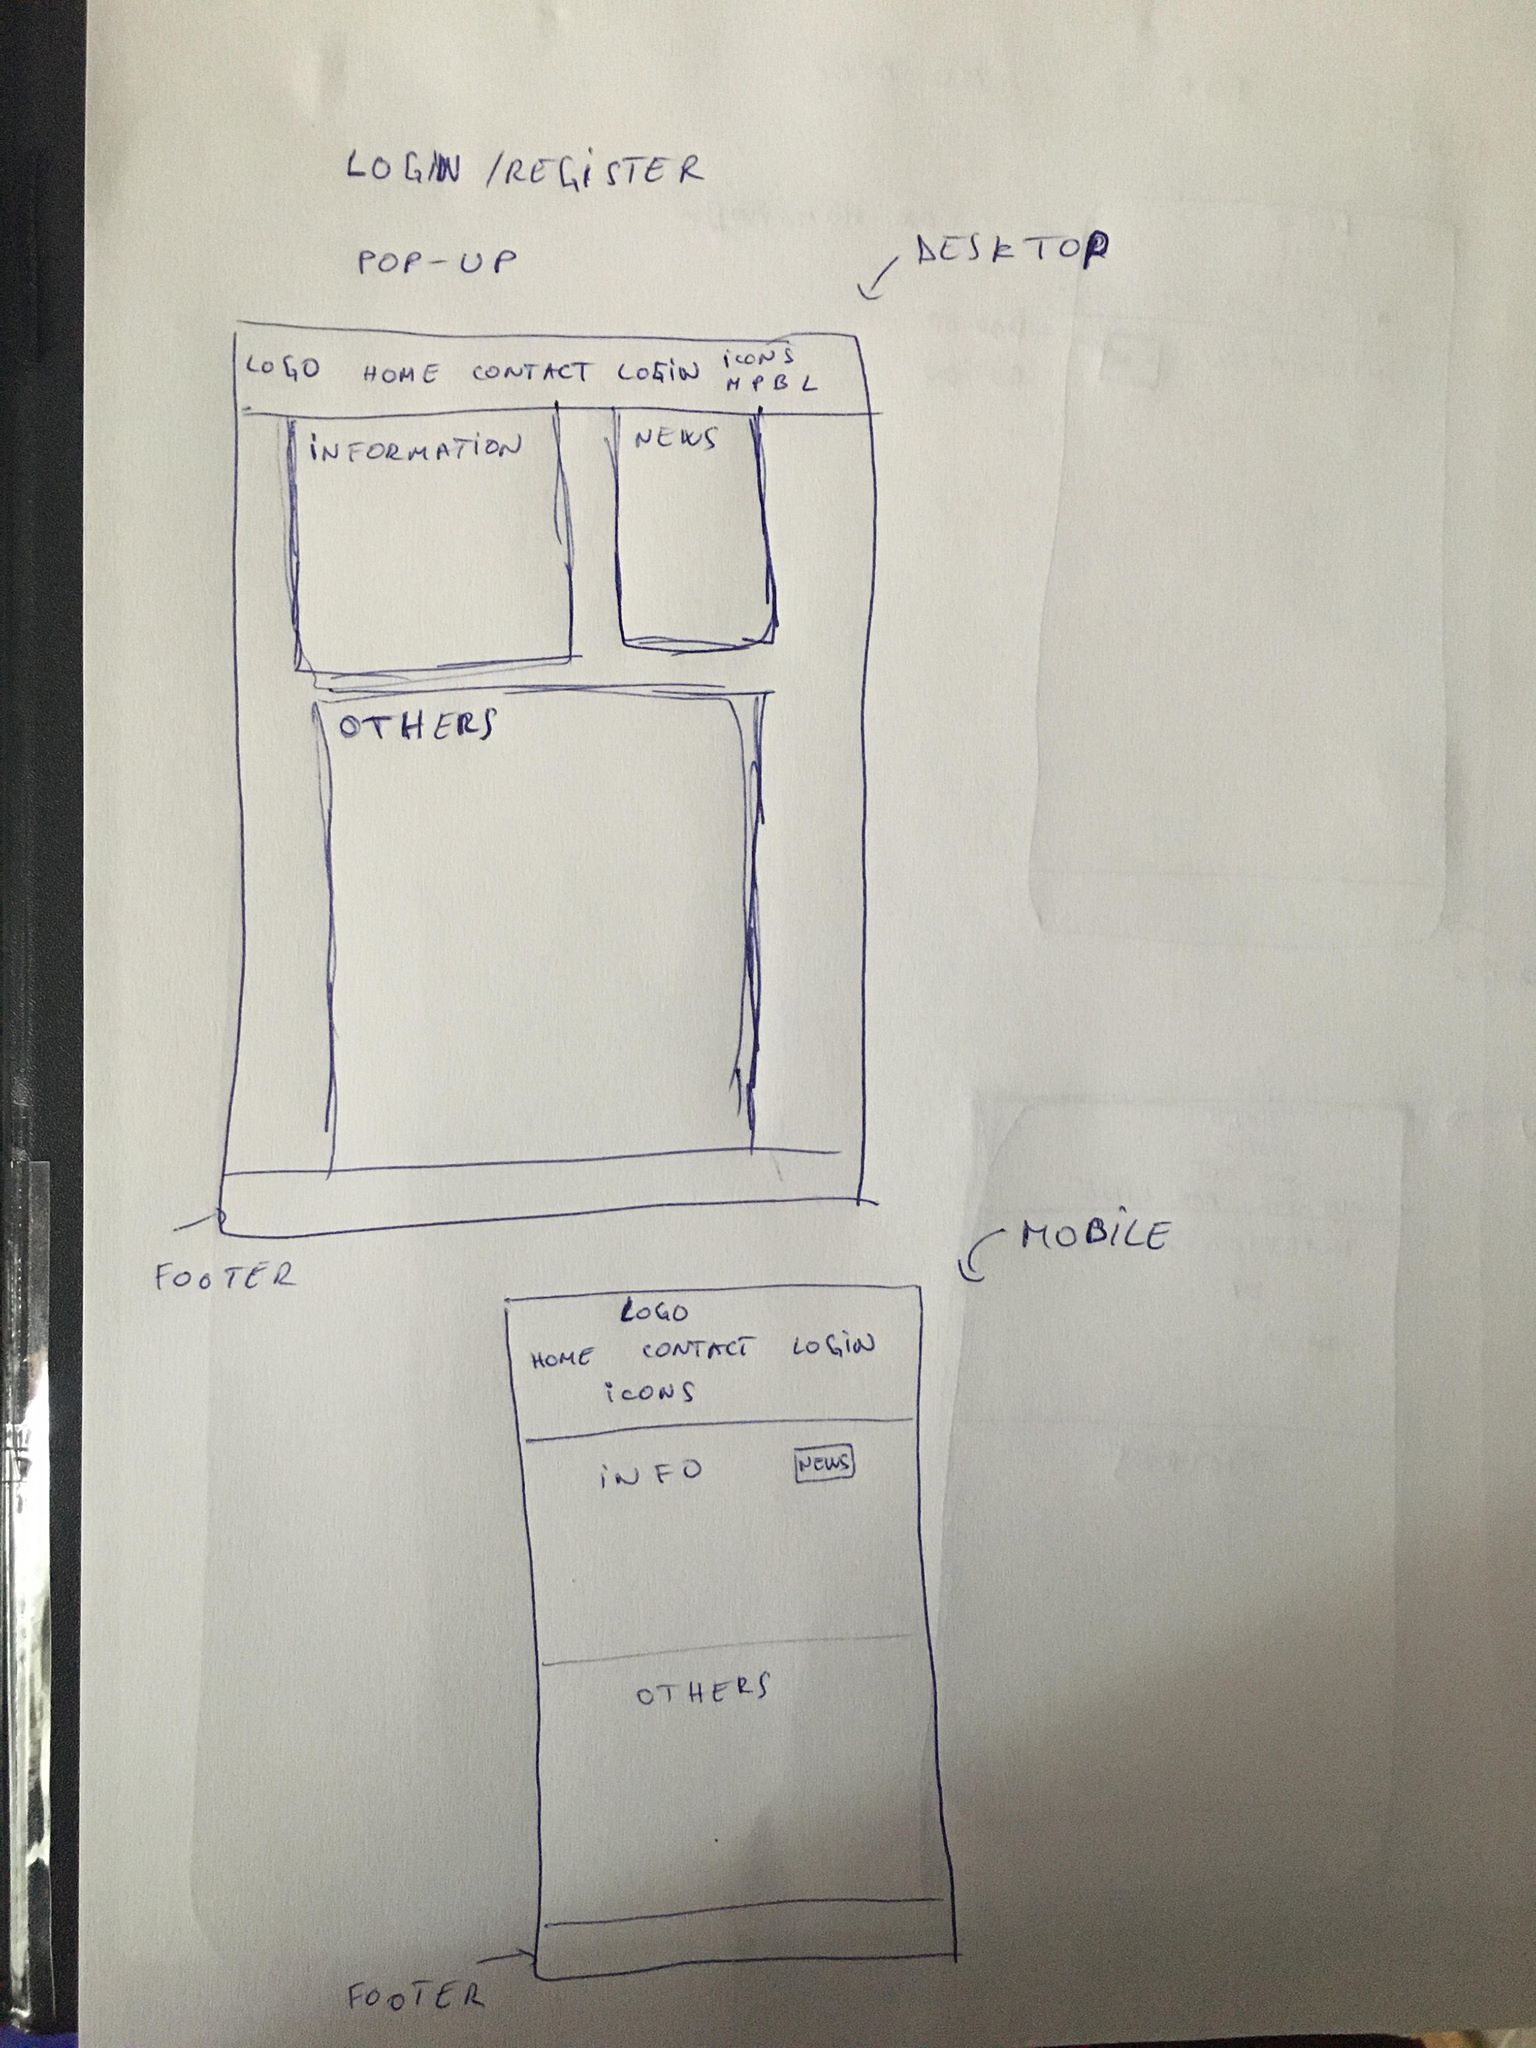 LOGIN / REGISTER
POP-UP
DESKTOP
LOGO HOME CONTACT LOGIN iCONS
MPBL
iNFORMATION NEWS
OTHERS
FOOTER
MOBiLE
LOGO
HOME CONTACT LOGiN
iCONS
iNFO NEWS
OTHERS
FOOTER